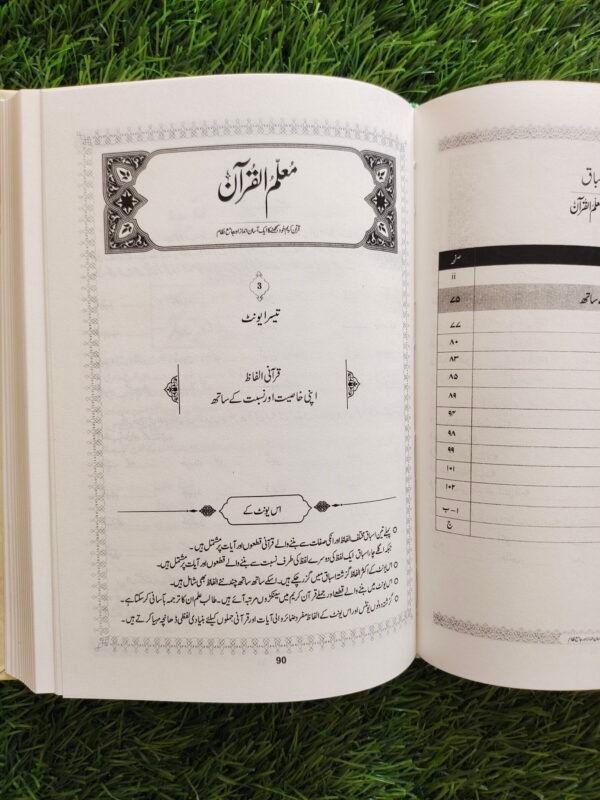 معلّمُ القُرآن
قرآن کریم خود سمجھنے کا ایک آسان انداز اور جامع نظام
3
تیسرا یونٹ
قرآنی الفاظ
اپنی خاصیت اور نسبت کے ساتھ
اس یونٹ کے
پہلے تین اسباق مختلف الفاظ اور انکی صفات سے بننے والے قرآنی قطعوں اور آیات پر مشتمل ہیں۔
جبکہ اگلے چار اسباق ایک لفظ کی دوسرے لفظ کی طرف نسبت سے بننے والے قطعوں اور آیات پر مشتمل ہیں۔
اس یونٹ کے اکثر الفاظ گزشتہ اسباق میں گزر چکے ہیں۔ اسکے ساتھ ساتھ چند نئے الفاظ بھی شامل ہیں۔
اس یونٹ میں بننے والے قطعے اور جملے قرآن کریم میں سینکڑوں مرتبہ آئے ہیں۔ طالب علم ان کا ترجمہ بآسانی کر سکتا ہے۔
گزشتہ دونوں یونٹس اور اس یونٹ کے الفاظ مفرد و ضمائر والی آیات اور قرآنی جملوں کیلئے بنیادی لفظی ڈھانچہ مہیا کرتے ہیں۔
90
اسباق
معلّمُ القُرآن
صفحہ
ii
کے ساتھ ۷۵
۷۷
۸۰
۸۳
۸۵
۸۹
۹۴
۹۸
۹۹
۱۰۱
۱۰۲
ا - ب
ج